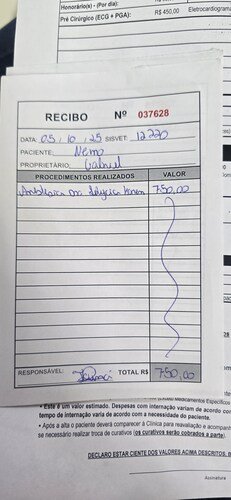 Honorário(s) - (Por dia):
Pré Cirúrgico (ECG + PGA): R$ 450,00 Eletrocardiograma
RECIBO Nº 037628
DATA: 03 / 10 / 25 SISVET: 12220
PACIENTE: Nemo
PROPRIETÁRIO: Gabriel
PROCEDIMENTOS REALIZADOS VALOR
750,00
RESPONSÁVEL: TOTAL R$ 750,00
• Este é um valor estimado. Despesas com internação variam de acordo com
tempo de internação varia de acordo com a necessidade do paciente.
• Após a alta o paciente deverá comparecer à Clínica para revaliação e acompanh
se necessário realizar troca de curativos (os curativos serão cobrados a parte).
DECLARO ESTAR CIENTE DOS VALORES ACIMA DESCRITOS, B
Assinatura